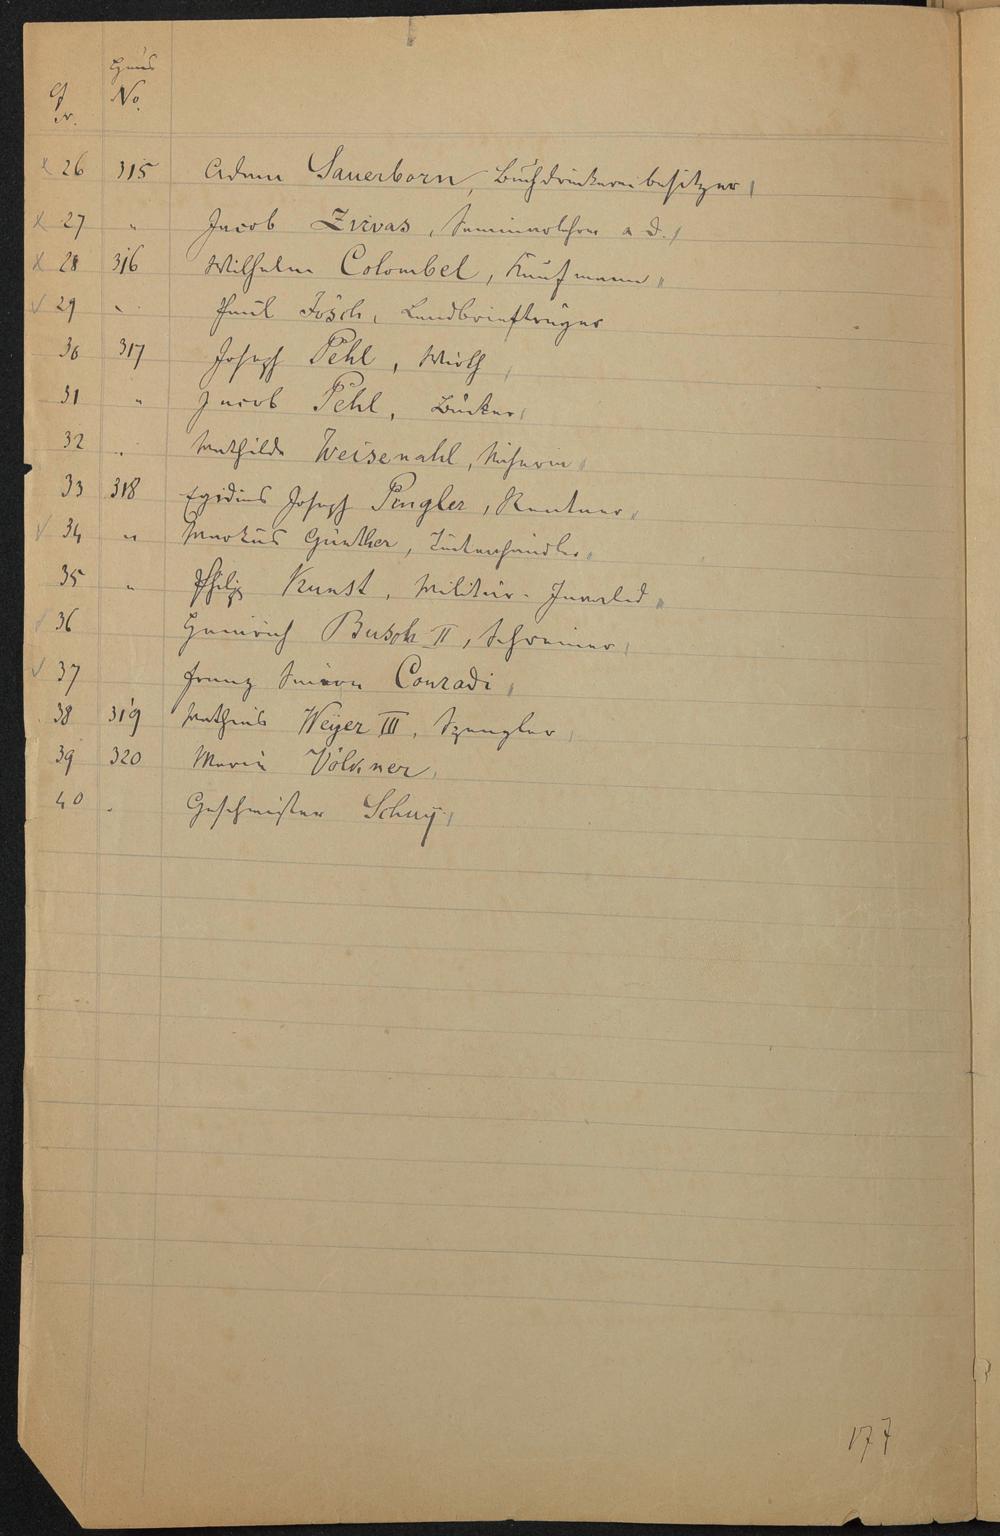 Haus
No.
Nr.
x 26 315 Adam Sauerborn, Buchdruckereibesitzer,
x 27 " Jacob Zrivas, a. D.,
x 28 316 Wilhelm Colombel, Kaufmann,
✓ 29 " Paul Jösch, Landbriefträger
30 317 Joseph Pehl, Wirth,
31 " Jacob Pehl, Bäcker,
32 " Mathilde Weisenahl, Näherin,
33 318 Egidius Joseph Pingler, Rentner,
✓ 34 " Markus Günther,
35 " Philipp Kunst, Militär-Invalid,
✓ 36 Heinrich Busch II, Schreiner,
✓ 37 Franz Simon Conradi,
38 319 Mathias Weyer III, Spengler,
39 320 Maria Völkner,
40 " Geschwister Schuy,
177